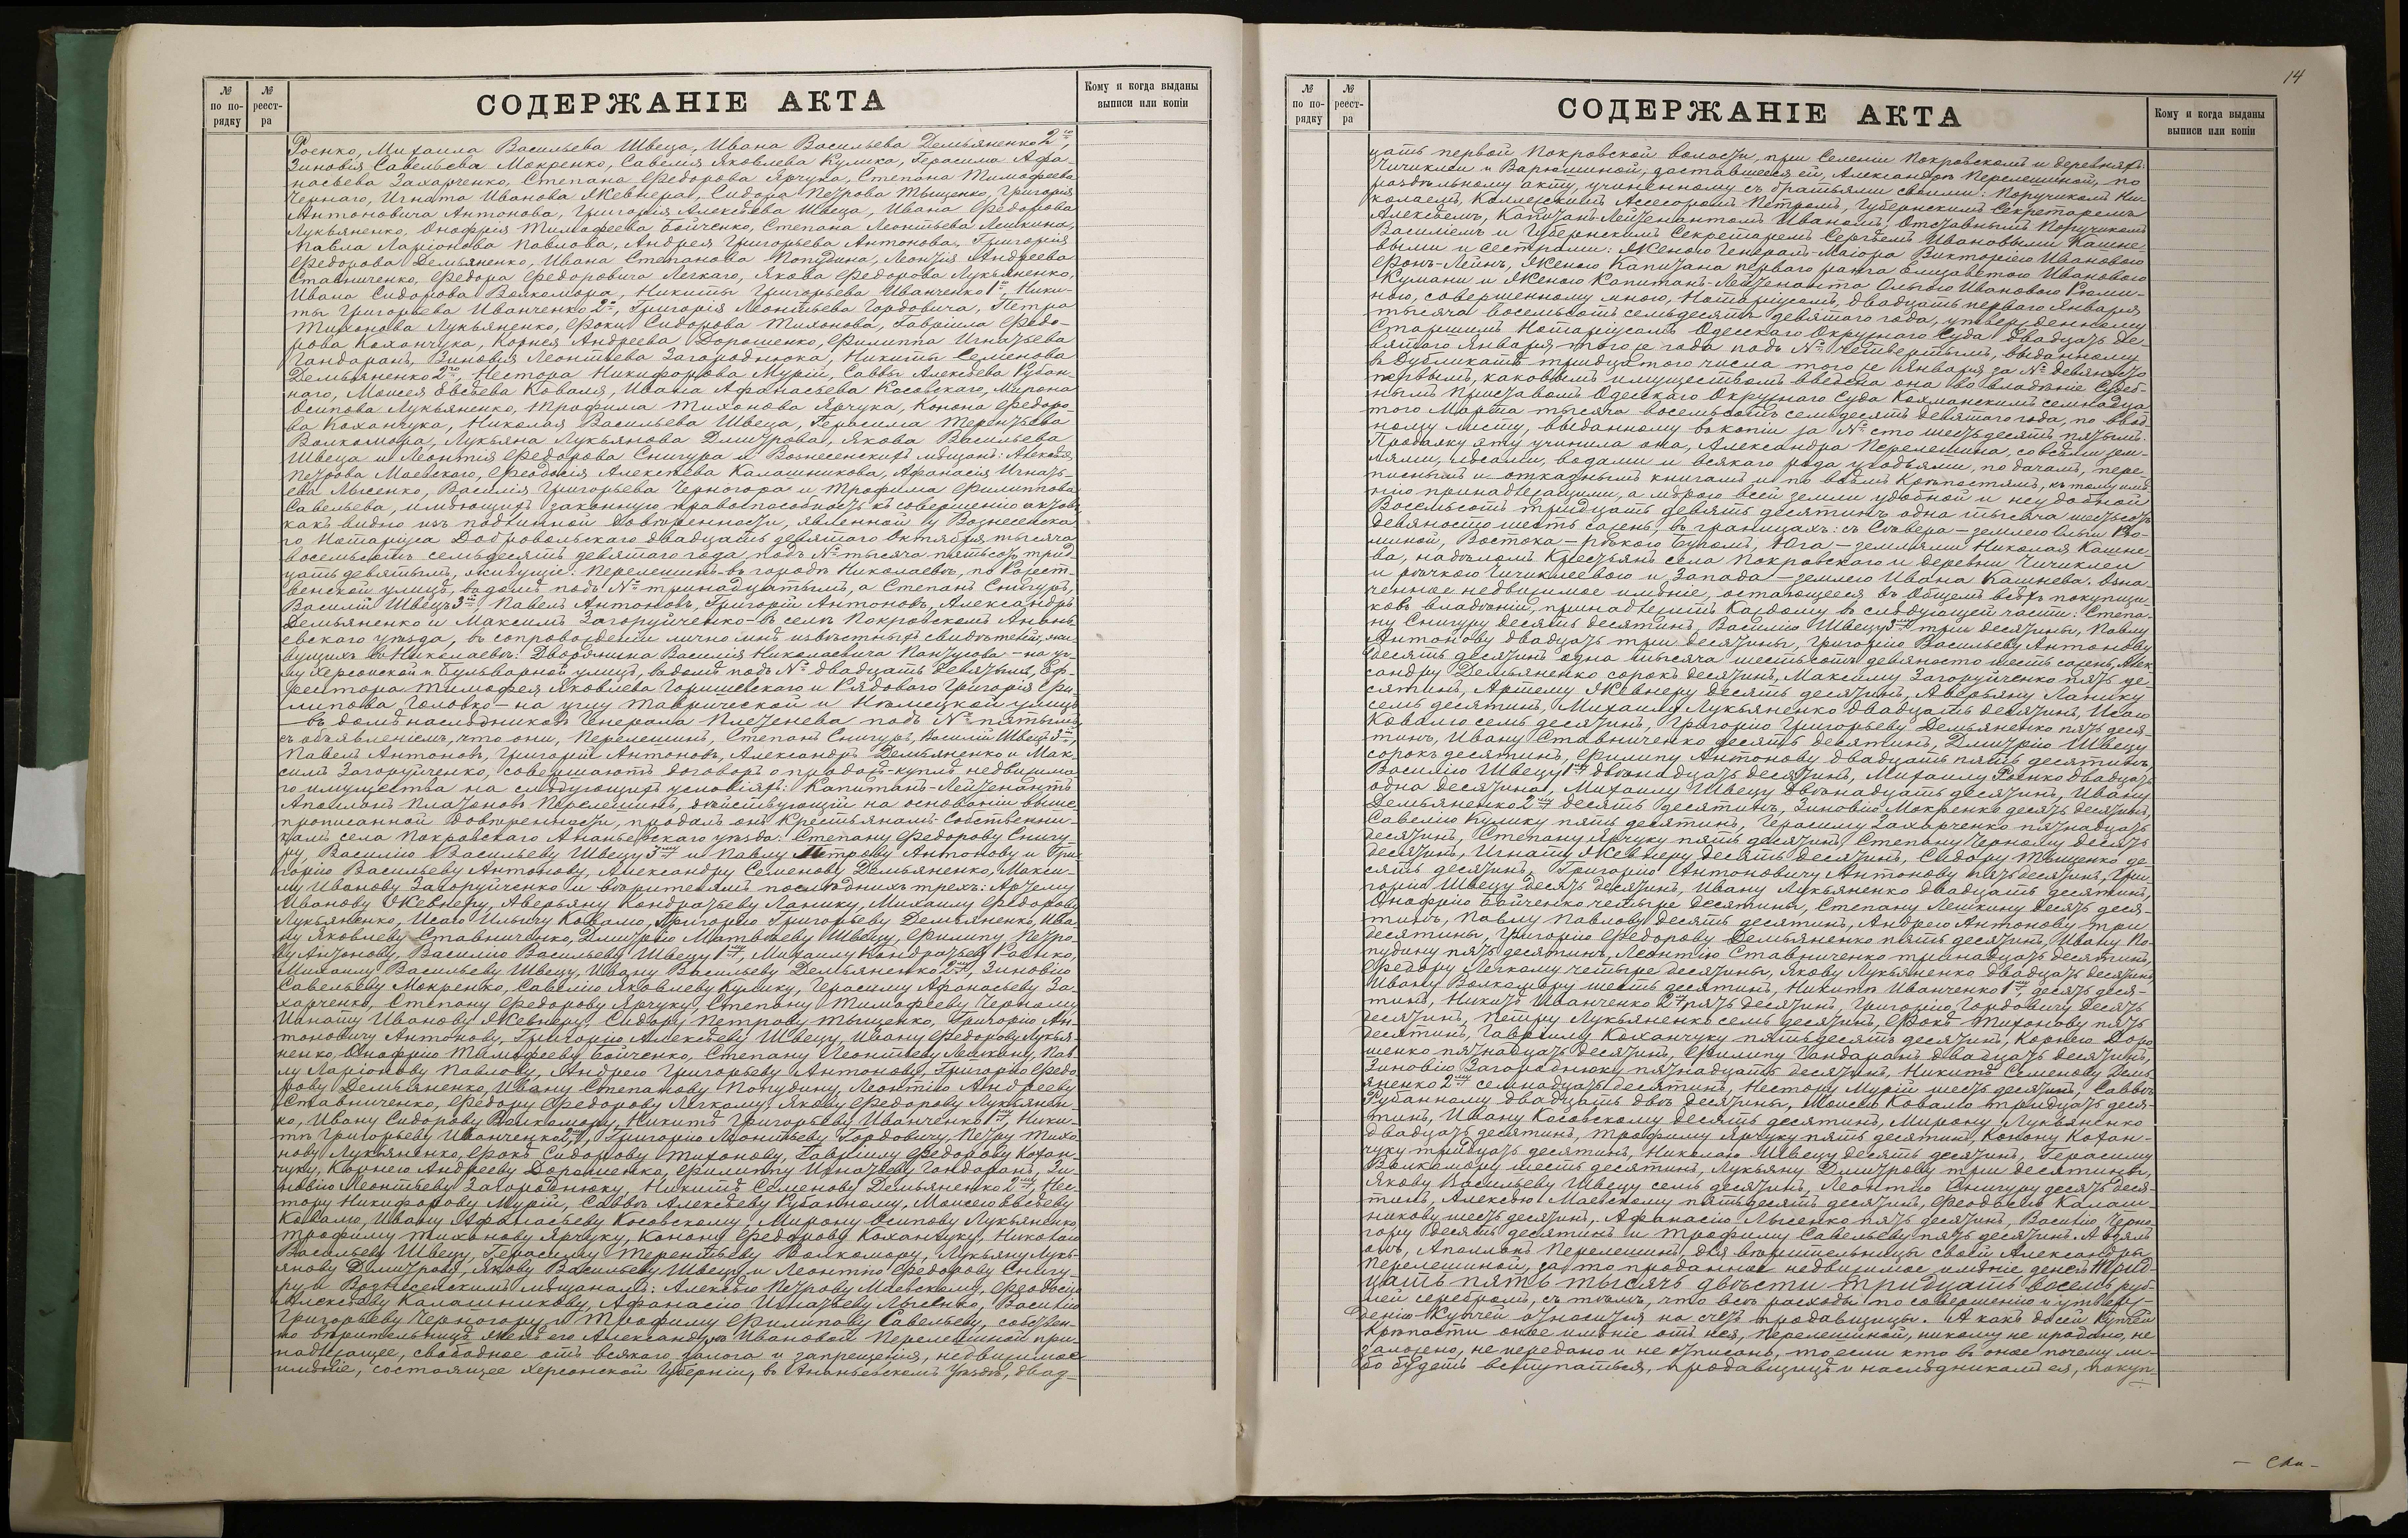 № по порядку
№ реестра
СОДЕРЖАНІЕ АКТА
Кому и когда выданы выписи или копіи
Роенко, Михаила Васильева Швеца, Ивана Васильева Демьяненко 2го,
Зиновія Савельева Мокренко, Савелія Яковлева Кулика, Герасима Афа-
насьева Захарченко, Степана Федорова Ярчука, Степана Тимофеева
Чернаго, Игната Иванова Жевнера, Сидора Петрова Тыщенко, Григорія
Антоновича Антонова, Григорія Алексѣева Швеца, Ивана Федорова
Лукьяненко, Онофрія Тимофеева Бойченко, Степана Леонтьева Лешкина,
Павла Ларіонова Павлова, Андрея Григорьева Антонова, Григорія
Федорова Демьяненко, Ивана Степанова Попудина, Леонтія Андреева
Ставниченко, Федора Федоровича Легкаго, Якова Федорова Лукьяненко,
Ивана Сидорова Волкомора, Никиты Григорьева Иванченко 1го, Ники-
ты Григорьева Иванченко 2го, Григорія Леонтьева Гордовича, Петра
Тихонова Лукьяненко, Фоки Сидорова Тихонова, Гавріила Федо-
рова Коханчука, Корнея Андреева Дорошенко, Филиппа Игнатьева
Гандаранъ, Зиновія Леонтьева Загороднюка, Никиты Семенова
Демьяненко 2го, Нестора Никифорова Мурій, Саввы Алексѣева Рубан-
наго, Моисея Овсѣева Коваля, Ивана Афанасьева Косовскаго, Мирона
Осипова Лукьяненко, Трофима Тихонова Ярчука, Конона Федоро-
ва Коханчука, Николая Васильева Швеца, Герасима Терентьева
Волкомора, Лукьяна Лукьянова Дмитрова, Якова Васильева
Швеца и Леонтія Федорова Снигура и Вознесенскихъ мѣщанъ: Алексѣя
Петрова Маевскаго, Феодосія Алексѣева Калашникова, Афанасія Игнать-
ева Лысенко, Василія Григорьева Черногора и Трофима Филиппова
Савельева, имѣющихъ законную правоспособность къ совершенію актовъ,
какъ видно изъ подлинной довѣренности, явленной у Вознесенска-
го Нотаріуса Добровольскаго двадцать девятаго Октября тысяча
восемьсотъ семьдесятъ девятаго года, подъ № тысяча пятьсотъ трид-
цать девятымъ, живущіе: Перелешинъ-въ городѣ Николаевѣ, по Рожест-
венской улицѣ, въ домѣ подъ № тринадцатымъ, а Степанъ Снигуръ,
Василій Швецъ 3й, Павелъ Антоновъ, Григорій Антоновъ, Александръ
Демьяненко и Максимъ Загоруйченко-въ селѣ Покровскомъ Анань-
евскаго уѣзда, въ сопровожденіи лично мнѣ извѣстныхъ свидѣтелей, жи-
вущихъ въ Николаевѣ: Дворянина Василія Николаевича Пантусова-на уг-
лу Херсонской и Бульварной улицъ, въ домѣ подъ № двадцать девятымъ, Еф-
рейтора Тимофея Яковлева Горишевскаго и Рядоваго Григорія Фи-
липова Головко-на углу Таврической и Нѣмецкой улицъ
-въ домѣ наслѣдниковъ Генерала Плетенева подъ № пятымъ,
съ объявленіемъ, что они, Перелешинъ, Степанъ Снигуръ, Василій Швецъ 3й,
Павелъ Антоновъ, Григорій Антоновъ, Александръ Демьяненко и Мак-
симъ Загоруйченко, совершаютъ договоръ о продажѣ-куплѣ недвижима-
го имущества на слѣдующихъ условіяхъ: Капитанъ-Лейтенантъ
Аполлонъ Платоновъ Перелешинъ, дѣйствующій на основаніи выше-
прописанной довѣренности, продалъ онъ Крестьянамъ Собственни-
камъ села Покровскаго Ананьевскаго уѣзда: Степану Федорову Снигу-
ру, Василію Васильеву Швецу 3му и Павлу Петрову Антонову и Гри-
горію Васильеву Антонову, Александру Семенову Демьяненко, Макси-
му Иванову Загоруйченко и вѣрителямъ послѣднихъ трехъ: Артему
Иванову Жевнеру, Аверьяну Кондратьеву Ланику, Михаилу Федорову
Лукьяненко, Исаю Ильичу Ковалю, Григорію Григорьеву Демьяненко, Ива-
ну Яковлеву Ставниченко, Дмитрію Матвѣеву Швецу, Филипу Петро-
ву Антонову, Василію Васильеву Швецу 1му, Михаилу Кондратьеву Роенко,
Михаилу Васильеву Швецу, Ивану Васильеву Демьяненко 2му, Зиновію
Савельеву Мокренко, Савелію Яковлеву Кулику, Герасиму Афанасьеву За-
харченко, Степану Федорову Ярчуку, Степану Тимофееву Черному,
Игнату Иванову Жевнеру, Сидору Петрову Тыщенко, Григорію Ан-
тоновичу Антонову, Григорію Алексѣеву Швецу, Ивану Федорову Лукья-
ненко, Онофрію Тимофееву Бойченко, Степану Леонтьеву Лешкину, Пав-
лу Ларіонову Павлову, Андрею Григорьеву Антонову, Григорію Федо-
рову Демьяненко, Ивану Степанову Попудину, Леонтію Андрееву
Ставниченко, Федору Федорову Легкому, Якову Федорову Лукьянен-
ко, Ивану Сидорову Волкомору, Никитѣ Григорьеву Иванченко 1му, Ники-
тѣ Григорьеву Иванченко 2му, Григорію Леонтьеву Гордовичу, Петру Тихо-
нову Лукьяненко, Фокѣ Сидорову Тихонову, Гавріилу Федорову Кохан-
чуку, Корнею Андрееву Дорошенко, Филиппу Игнатьеву Гандаранъ, Зи-
новію Леонтьеву Загороднюку, Никитѣ Семенову Демьяненко 2му, Нес-
тору Никифорову Мурій, Саввѣ Алексѣеву Рубанному, Моисею Овсѣеву
Ковалю, Ивану Афанасьеву Косовскому, Мирону Осипову Лукьяненко,
Трофиму Тихонову Ярчуку, Конону Федорову Коханчуку, Николаю
Васильеву Швецу, Герасиму Терентьеву Волкомору, Лукьяну Лукь-
янову Дмитрову, Якову Васильеву Швецу и Леонтію Федорову Снигу-
ру и Вознесенскимъ мѣщанамъ: Алексѣю Петрову Маевскому, Феодосію
Алексѣеву Калашникову, Афанасію Игнатьеву Лысенко, Василію
Григорьеву Черногору и Трофиму Филипову Савельеву, собствен-
но вѣрительницѣ женѣ его Александрѣ Ивановой Перелешиной при-
надлежащее, свободное отъ всякаго залога и запрещенія, недвижимое
имѣніе, состоящее Херсонской Губерніи, въ Ананьевскомъ Уѣздѣ, двад-
14
№ по порядку
№ реестра
СОДЕРЖАНІЕ АКТА
Кому и когда выданы выписи или копіи
цать первой Покровской волости, при Селеніи Покровскомъ и деревняхъ:
Чичиклеи и Варюшиной, доставшееся ей, Александрѣ Перелешиной, по
раздѣльному акту, учиненному съ братьями своими: Поручикомъ Ни-
колаемъ, Коллежскимъ Ассесоромъ Петромъ, Губернскимъ Секретаремъ
Алексѣемъ, Капитанъ-Лейтенантомъ Иваномъ, Отставнымъ Поручикомъ
Василіемъ и Губернскимъ Секретаремъ Сергѣемъ Ивановыми Кашне-
выми и сестрами: Женою Генералъ-Маіора Викторіею Ивановою
Фонъ-Лейнъ, Женою Капитана перваго ранга Елизаветою Ивановою
Кумани и Женою Капитанъ-Лейтенанта Ольгою Ивановою Рюми-
ною, совершенному мною, Нотаріусомъ, двадцать перваго Января
тысяча восемьсотъ семьдесятъ девятаго года, утвержденному
Старшимъ Нотаріусомъ Одесскаго Окружнаго Суда двадцать де-
вятаго Января того же года подъ № четвертымъ, выданному
въ дубликатѣ тридцатаго числа того же Января за № девяносто
первымъ, каковымъ имуществомъ введена она во владѣніе Судеб-
нымъ Приставомъ Одесскаго Окружнаго Суда Кохманскимъ семнадца-
таго Марта тысяча восемьсотъ семьдесятъ девятаго года, по ввод-
ному листу, выданному въ копіи за № сто шестьдесятъ пятымъ.
Продажу эту учинила она, Александра Перелешина, со всѣми зем-
лями, лѣсами, водами и всякаго рода угодьями, по дачамъ, пере-
писнымъ и отказнымъ книгамъ и по всѣмъ крѣпостямъ, къ тому имѣ-
нію принадлежащими, а мѣрою всей земли удобной и неудобной
Восемьсотъ тридцать девять десятинъ одна тысяча шестьсотъ
девяносто шесть сажень, въ границахъ: съ Сѣвера-землею Ольги Рю-
миной, Востока-рѣкою Бугомъ, Юга-землями Николая Кашне-
ва, надѣломъ Крестьянъ села Покровскаго и деревни Чичиклеи
и рѣчкою Чичиклеевою и Запада-землею Ивана Кашнева. Озна-
ченное недвижимое имѣніе, остающееся въ общемъ всѣхъ покупщи-
ковъ владѣніи, принадлежитъ каждому въ слѣдующей части: Степа-
ну Снигуру десять десятинъ, Василію Швецу 3му три десятины, Павлу
Антонову двадцать три десятины, Григорію Васильеву Антонову
десять десятинъ одна тысяча шестьсотъ девяносто шесть сажень, Алек-
сандру Демьяненко сорокъ десятинъ, Максиму Загоруйченко пять де-
сятинъ, Артему Жевнеру десять десятинъ, Аверьяну Ланику
семь десятинъ, Михаилу Лукьяненко двадцать десятинъ, Исаю
Ковалю семь десятинъ, Григорію Григорьеву Демьяненко пять деся-
тинъ, Ивану Ставниченко десять десятинъ, Дмитрію Швецу
сорокъ десятинъ, Филипу Антонову двадцать пять десятинъ,
Василію Швецу 1му двѣнадцать десятинъ, Михаилу Роенко двадцать
одна десятина, Михаилу Швецу двѣнадцать десятинъ, Ивану
Демьяненко 2му десять десятинъ, Зиновію Мокренко десять десятинъ,
Савелію Кулику пять десятинъ, Герасиму Захарченко пятнадцать
десятинъ, Степану Ярчуку пять десятинъ, Степану Черному десять
десятинъ, Игнату Жевнеру десять десятинъ, Сидору Тыщенко де-
сять десятинъ, Григорію Антоновичу Антонову пять десятинъ, Гри-
горію Швецу десять десятинъ, Ивану Лукьяненко двадцать десятинъ,
Онофрію Бойченко четыре десятины, Степану Лешкину десять деся-
тинъ, Павлу Павлову десять десятинъ, Андрею Антонову три
десятины, Григорію Федорову Демьяненко пять десятинъ, Ивану По-
пудину пять десятинъ, Леонтію Ставниченко тринадцать десятинъ,
Федору Легкому четыре десятины, Якову Лукьяненко двадцать десятинъ,
Ивану Волкомору шесть десятинъ, Никитѣ Иванченко 1му десять деся-
тинъ, Никитѣ Иванченко 2му пять десятинъ, Григорію Гордовичу десять
десятинъ, Петру Лукьяненко семь десятинъ, Фокѣ Тихонову пять
десятинъ, Гавріилу Коханчуку пятьдесятъ десятинъ, Корнею Доро-
шенко пятнадцать десятинъ, Филипу Гандаранъ двадцать десятинъ,
Зиновію Загороднюку пятнадцать десятинъ, Никитѣ Семенову Демь-
яненко 2му семнадцать десятинъ, Нестору Мурій шесть десятинъ, Саввѣ
Рубанному двадцать двѣ десятины, Моисею Ковалю тридцать деся-
тинъ, Ивану Косовскому десять десятинъ, Мирону Лукьяненко
двадцать десятинъ, Трофиму Ярчуку пять десятинъ, Конону Кохан-
чуку тридцать десятинъ, Николаю Швецу десять десятинъ, Герасиму
Волкомору шесть десятинъ, Лукьяну Дмитрову три десятины,
Якову Васильеву Швецу семь десятинъ, Леонтію Снигуру десять деся-
тинъ, Алексѣю Маевскому пятьдесятъ десятинъ, Феодосію Калаш-
никову шесть десятинъ, Афанасію Лысенко пять десятинъ, Василію Черно-
гору десять десятинъ и Трофиму Савельеву пять десятинъ. А взялъ
онъ, Аполлонъ Перелешинъ, для вѣрительницы своей Александры
Перелешиной, за то проданное недвижимое имѣніе денегъ Трид-
цать пять тысячъ двѣсти тридцать восемь руб-
лей серебромъ, съ тѣмъ, что всѣ расходы по совершенію и утверж-
денію Купчей относятся на счетъ продавщицы. А какъ до сей Купчей
Крѣпости оное имѣніе отъ нея, Перелешиной, никому не продано, не
заложено, не передано и не отписано, то если кто въ оное почему ли-
бо будетъ вступаться, продавщицѣ и наслѣдникамъ ея, покуп-